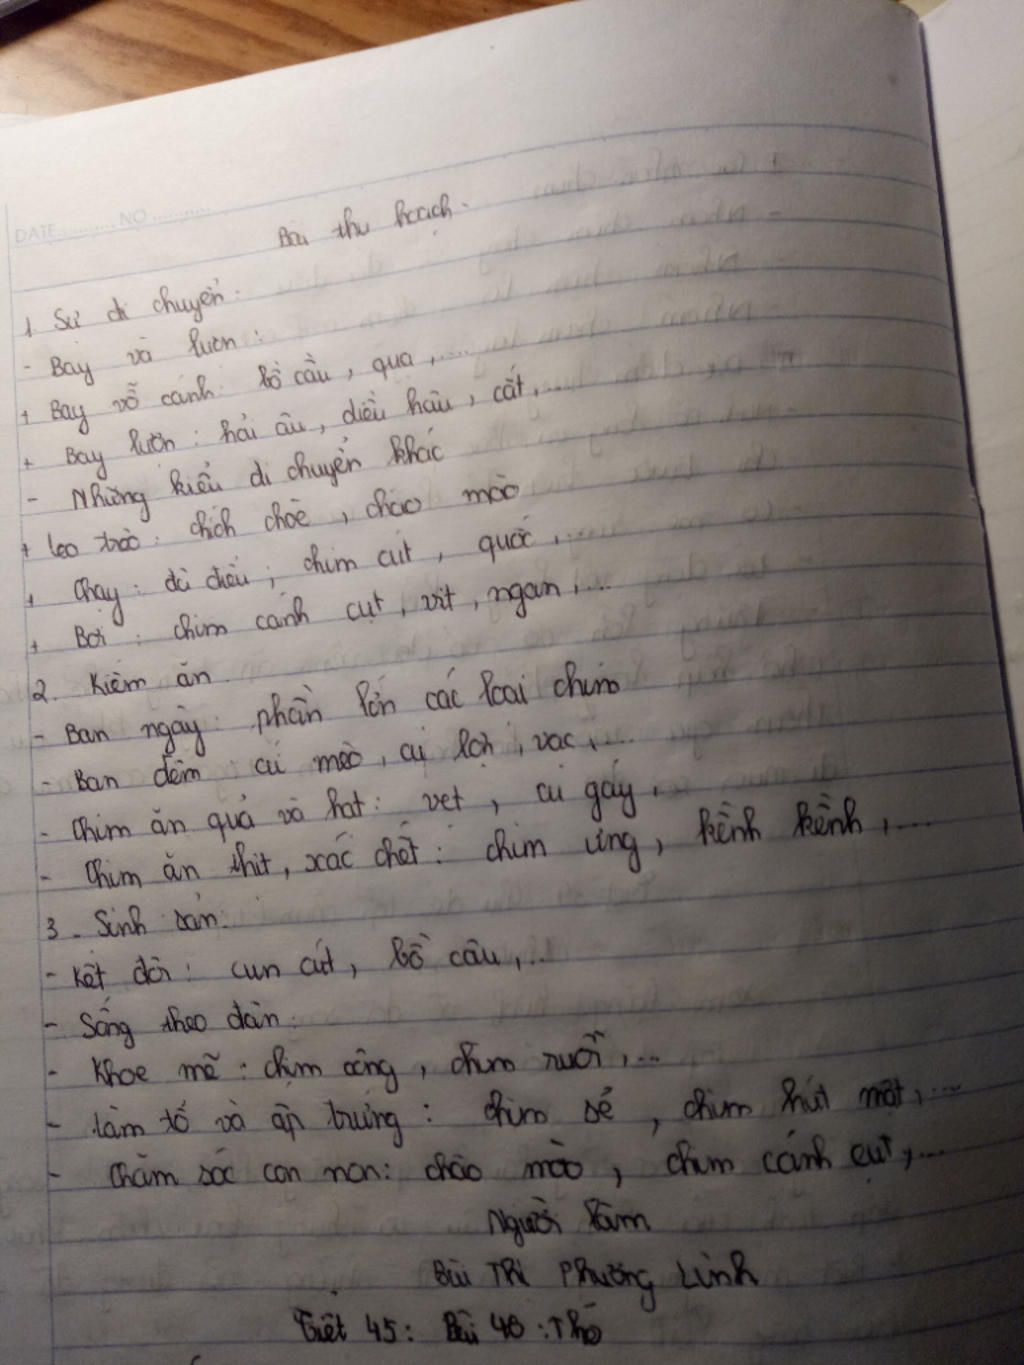 DATE ............ NO ............
Bài thu hoạch.
1. Sự di chuyển:
- Bay và lượn:
+ Bay vỗ cánh: bồ câu, quạ,....
+ Bay lượn: hải âu, diều hâu, cắt,....
- Những kiểu di chuyển khác
+ leo trèo: chích choè, chào mào
+ Chạy: đà điểu, chim cút, quốc,...
+ Bơi: chim cánh cụt, vịt, ngan,...
2. Kiếm ăn.
- Ban ngày: phần lớn các loài chim
- Ban đêm: cú mèo, cú lợn, vạc,...
- Chim ăn quả và hạt: vẹt, cu gáy,
- Chim ăn thịt, xác chết: chim ưng, kền kền,....
3. Sinh sản.
- Kết đôi: cun cút, bồ câu,..
- Sống theo đàn:
- Khoe mẽ: chim công, chim ruồi,...
- Làm tổ và ấp trứng: chim sẻ, chim hút mật,...
- Chăm sóc con non: chào mào, chim cánh cụt,...
Người làm
Bùi Thị Phương Linh
Tiết 45: Bài 46: Thỏ